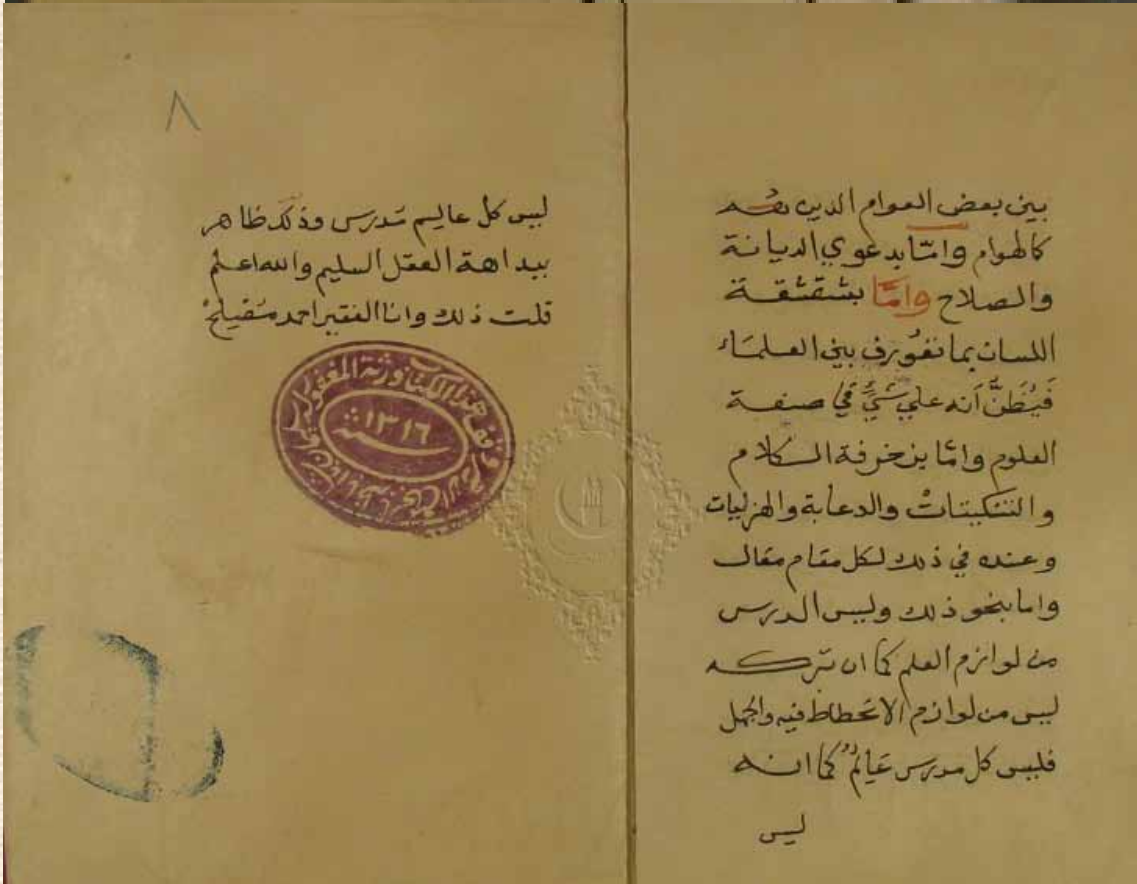 بين بعض العوام الدين هم
كالهوام وامّا بدعوي الديانة
والصلاح وامّا بشقشقة
اللسان بما تعورف بين العلمَاء
فَيُظَنَّ أنه علي شيءٍ في صنعة
العلوم وامّا بزخرفة الكلام
والتنكيتاتْ والدعابة والهزليات
وعنده في ذلك لكل مقام مقال
واما بنحو ذلك وليس الدرس
من لوازم العلم كما ان تركه
ليس من لوازم الانحطاط فيه والجهل
فليس كل مدرس عَالِمٌ كما انه
ليس
٨
ليس كل عالِم مَدرس وذلك ظاهر
ببداهة العقل السليم والله اعلم
قلت ذلك وانا الفقير احمد
وقف هذا الكتاب ورثة المغفور له
سنة ١٣١٦